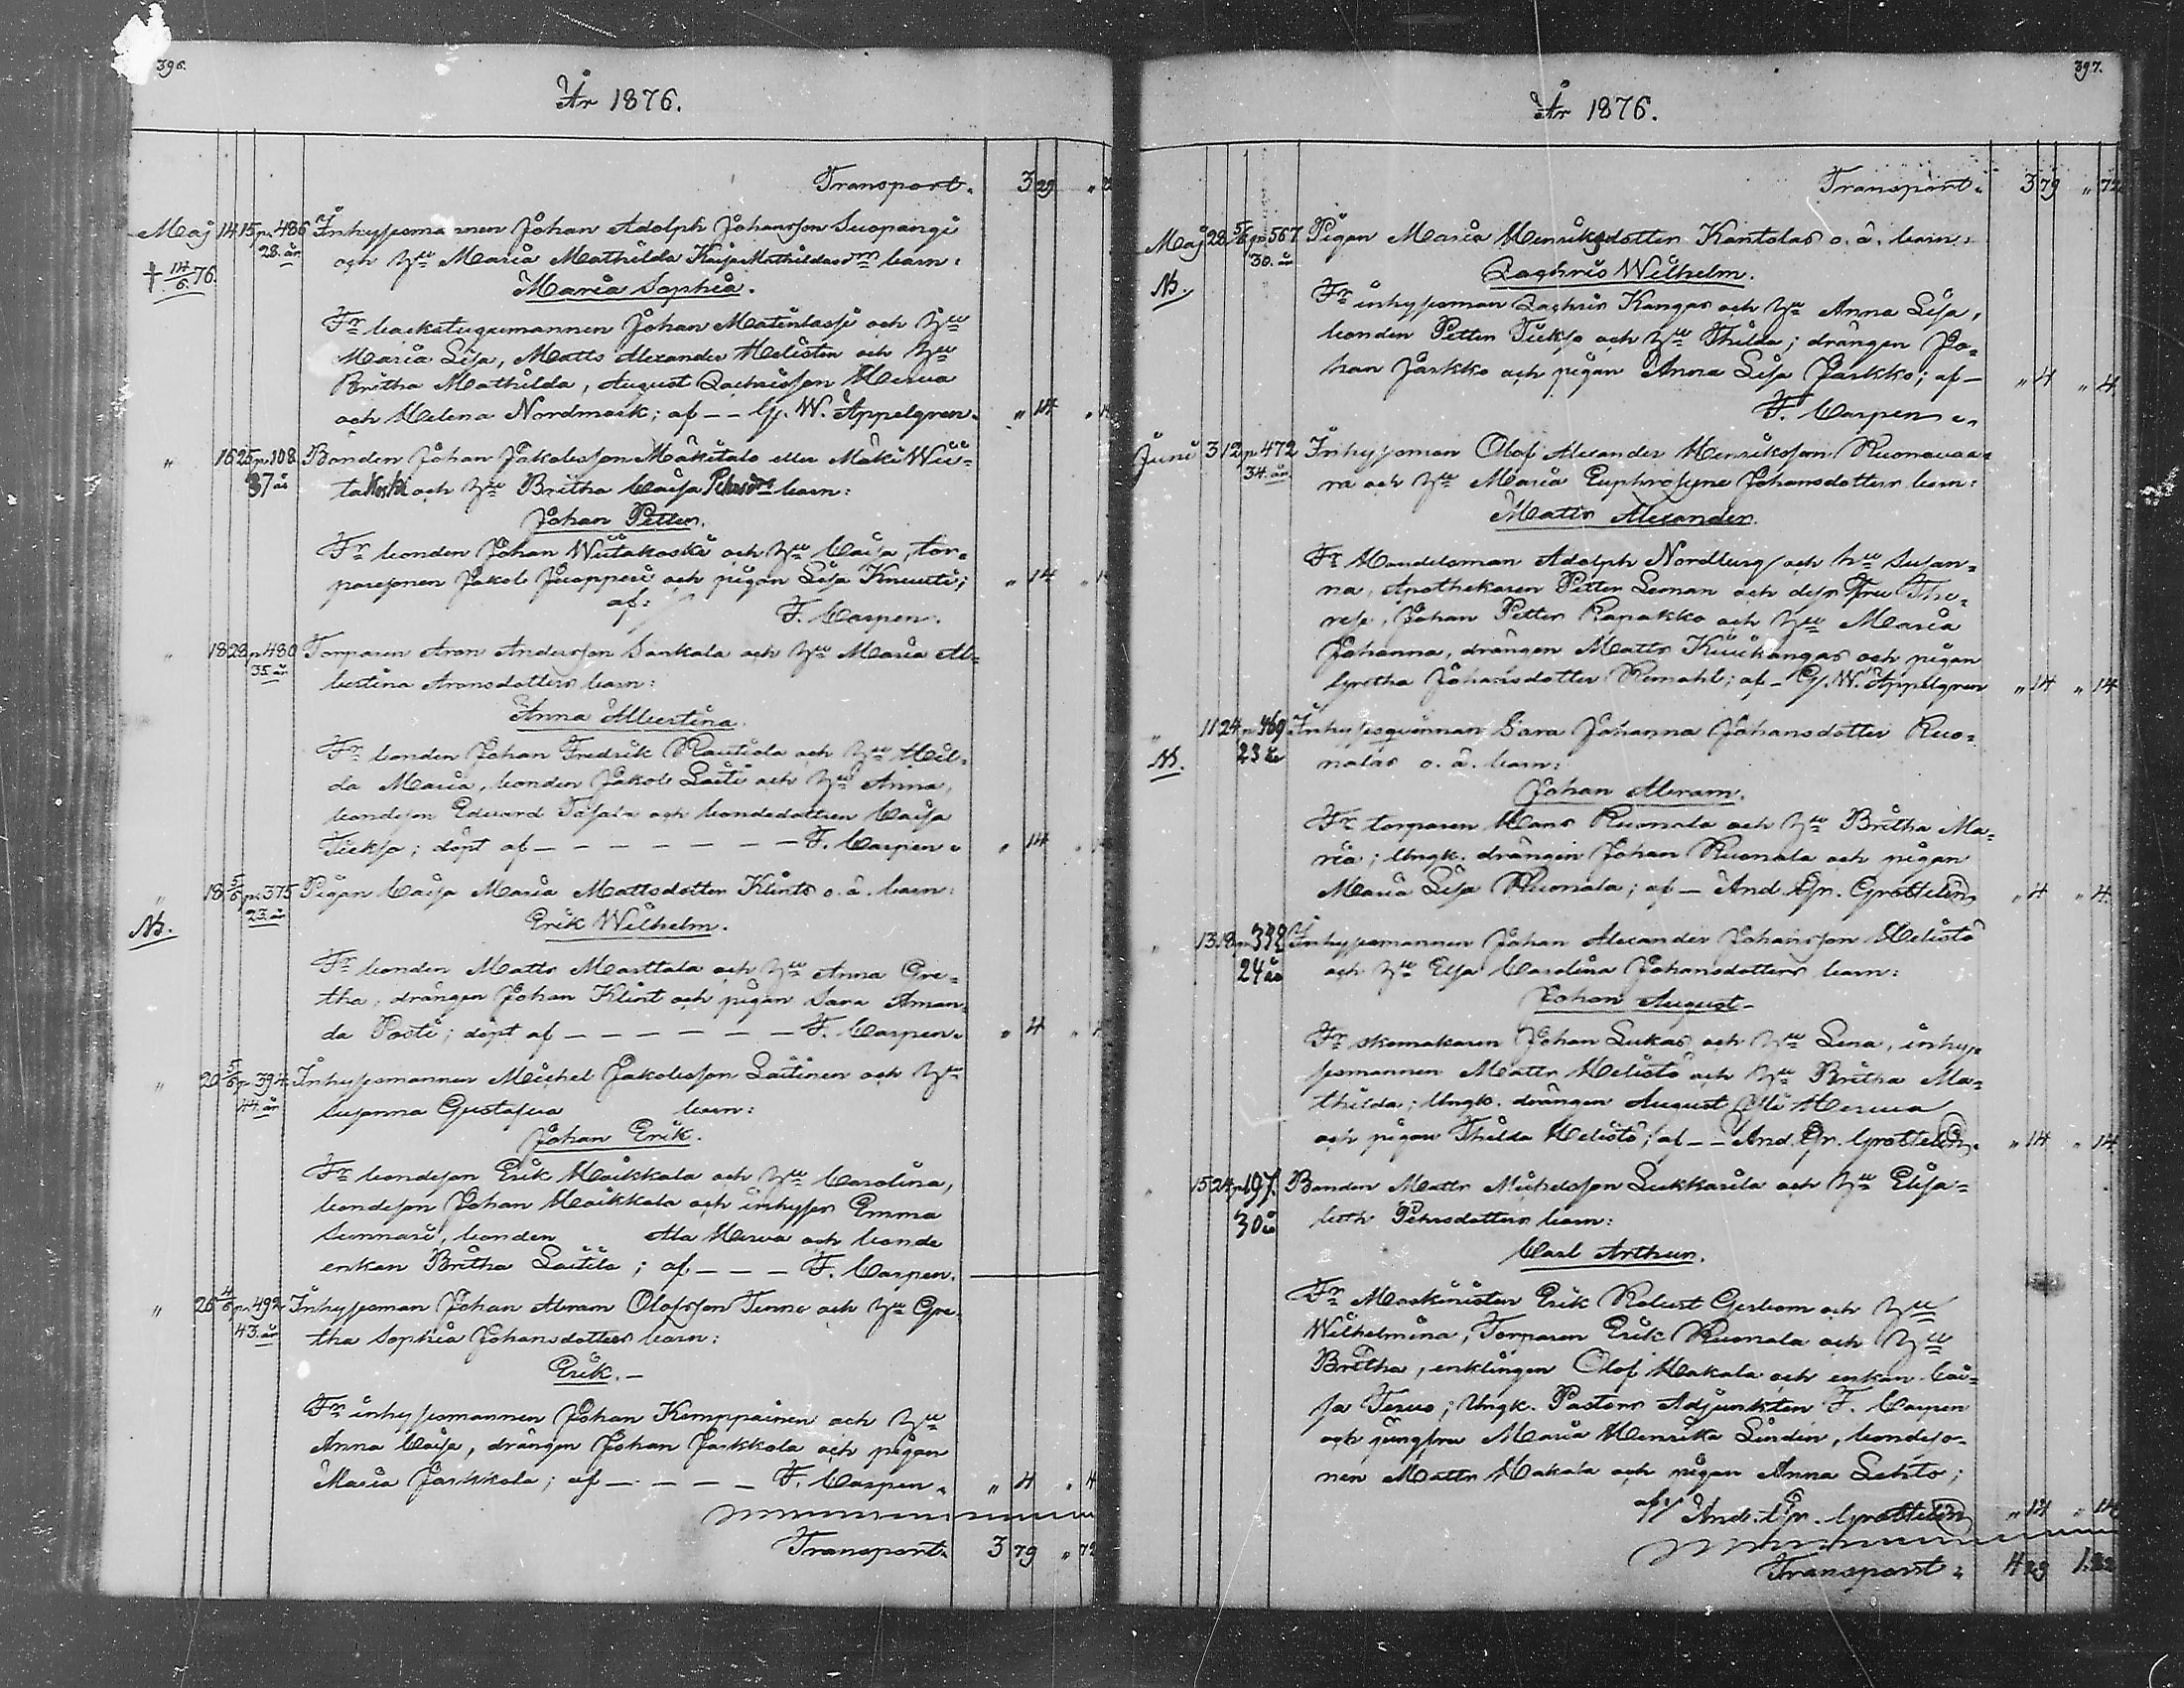 396.
År 1876.
Transport. 3 29 " 22
Maj 14 15 p. 486 Inhysesmannen Johan Adolph Johansson Suopangi
28. år och h:u Maria Mathilda Kaisa Mathildasd:rs barn:
† 14/6 76. Maria Sophia.
Fr backstugumannen Johan Matinlassi och h:u
Maria Lisa, Matts Alexander Helistén och h:u
Britha Mathilda, August Zachrisson Herva
och Helena Nordmark; af — — G. W. Appelgren. " 14
" 16 25 p. 108 Bonden Johan Jakobsson Mäkitalo eller Mäki Wii-
37 år takoski och h:u Britha Caisa Pehrsd:rs barn:
Johan Petter.
Fr bonden Johan Wiitakoski och h:u Caisa, tor-
paresonen Jakob Juopperi och pigan Lisa Knuuti; " 14
af: F. Carpen.
" 18 28 p. 480 Torparen Aron Andersson Sankala och h:u Maria Al-
35 år bertina Aronsdotters barn:
Anna Albertina.
Fr bonden Johan Fredrik Rautiola och h:u Hil-
da Maria, bonden Jakob Laiti och h:u Anna,
bondeson Eduard och bondedottren Caisa
Tiekso; döpt af — — — — — — — F. Carpen. " 14
" 18 5/6 p. 375 Pigan Caisa Maria Mattsdotter Klints o. ä. barn:
23. år Erik Wilhelm.
Nb.
Fr bonden Matts Marttala och h:u Anna Gre-
tha, drängen Johan Klint och pigan Sara Aman-
da Posti; döpt af — — — — — — F. Carpen. " 4
" 20 5/6 p. 394. Inhysesmannen Michel Jakobsson Laitinen och h:u
44. år Susanna Gustafva barn:
Johan Erik.
Fr bondeson Erik Maikkala och h:u Carolina,
bondeson Johan Maikkala och inhyses Emma
Sunnari, bonden Ala Herva och bonde
enkan Britha Laitila; af — — — F. Carpen.
" 26 4/6 p. 492 Inhysesman Johan Abram Olofsson Tenno och h:u Gre-
43. år tha Sophia Johansdotters barn:
Erik. —
Fr inhysesmannen Johan Kemppainen och h:u
Anna Caisa, drängen Johan Jarkkola och pigan
Maria Jarkkola; af — — — — F. Carpen. " 4 " 4
Transport. 3 79 " 72
397.
År 1876.
Transport. 3 79 " 72
Maj 28 5/6 p. 567 Pigan Maria Henriksdotter Kantolas o. ä. barn:
30. år Zachris Wilhelm.
Nb. Fr inhysesman Zachris Kangas och h:u Anna Lisa,
bonden Petter Tiekso och h:u Thilda; drängen Jo-
han Jarkko och pigan Anna Lisa Jarkko; af — " 4 " 4
F. Carpen.
Juni 3 12 p. 472 Inhysesman Olof Alexander Henriksson Ruonavaa-
34. år. ra och h:u Maria Euphrosyne Johansdotters barn:
Matts Alexander.
Fr Handelsman Adolph Nordberg och h:u Susan-
na, Apothekaren Petter Leman och dess Fru The-
rese, Johan Petter Rapakko och h:u Maria
Johanna, drängen Matts Kuukangas och pigan
Gretha Johansdotter Remahl; af — G. W. Appelgren " 14 " 14
" 11 24 p. 469 Inhysesqvinnan Sara Johanna Johansdotter Ruo-
23 år nalas o. ä. barn:
Nb.
Johan Abram.
Fr torparen Hans Ruonala och h:u Britha Ma-
ria; Ungk. drängen Johan Ruonala och pigan
Maria Lisa Ruonala; af — And. Gr. Grotelin " 4 " 4.
" 13 18 p. 392 Inhysesmannen Johan Alexander Johansson Helistö
24 år och h:u Elsa Carolina Johansdotters barn:
Johan August —
Fr skomakaren Johan Lukas och h:u Lena, inhy-
sesmannen Matts Helistö och h:u Britha Ma-
thilda; Ungk. drängen August Herva
och pigan Thilda Helistö; af — — And. Gr. Grotelin. " 14 " 14
" 15 24 p. 197. Bonden Matts Michelsson Lukkarila och h:u Elisa-
30 år beth Pehrsdotters barn:
Carl Arthur.
Fr Maskinisten Erik Robert Gerbom och h:u
Wilhelmina, Torparen Erik Ruonala och h:u
Britha, enklingen Olof Hakala och enkan Cai-
sa Tervo; Ungk. Pastors Adjunkten F. Carpen
och jungfru Maria Henrika Lindin, bondeso-
nen Matts Hakala och pigan Anna Lehto;
af And. Gr. Grotelin " 14 " 14
Transport. 4 29 1.22